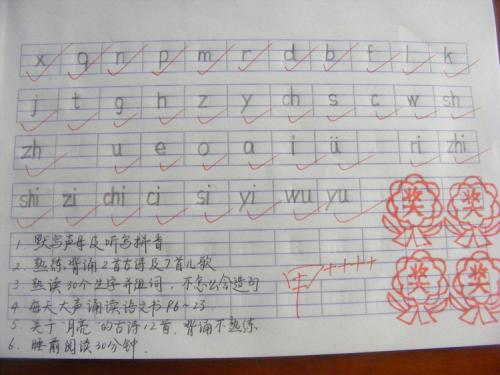 x q n p m r d b f l k
j t g h z y ch s c w sh
zh u e o a i ü ri zhi
shi zi chi ci si yi wu yu
奖 奖
1. 默写声母及听写拼音
2. 熟练背诵2首古诗及2首儿歌
甲++++
奖 奖
3. 熟读30个生字并组词，不怎么会造句
4. 每天大声诵读语文书P6~23
5. 关于"月亮"的古诗12首，背诵不熟练
6. 睡前阅读30分钟.